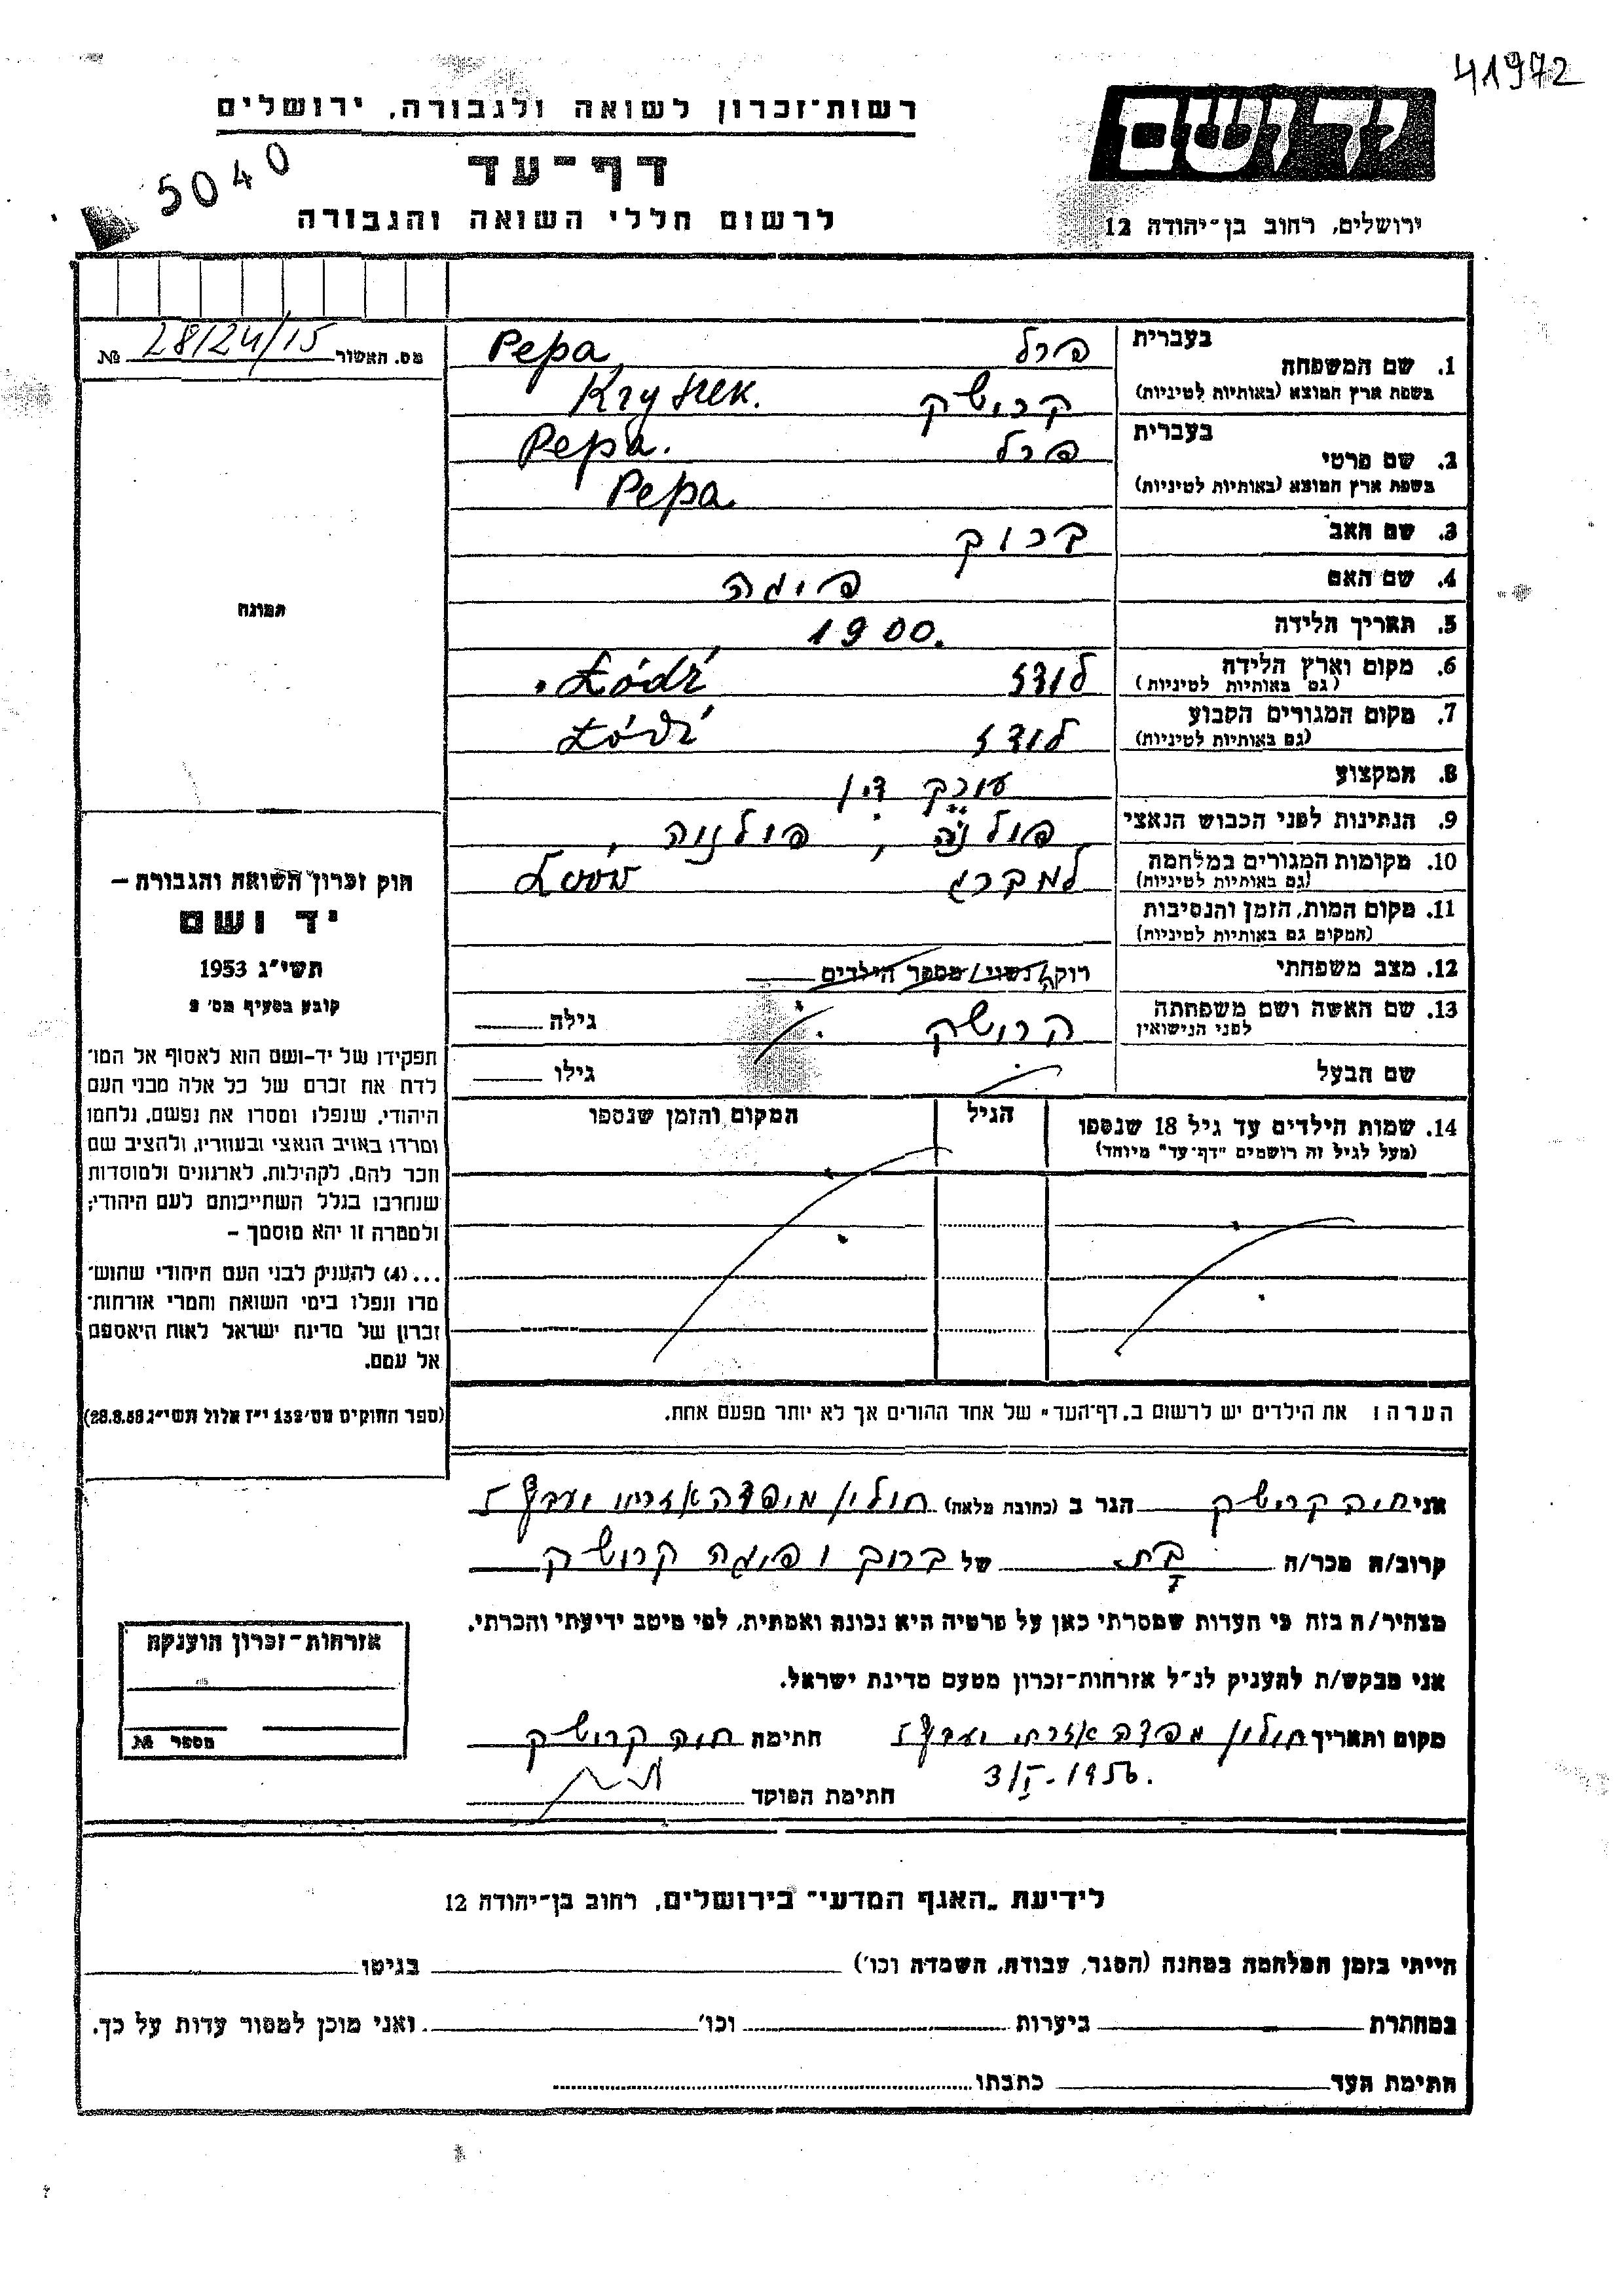 41972
יד ושם
רשות־זכרון לשואה ולגבורה, ירושלים
דף־עד
5040
לרשום חללי השואה והגבורה
ירושלים, רחוב בן־יהודה 12
מס. האשור 28/24/15 №
בעברית
1. שם המשפחה פרל Pepa
בשפת ארץ המוצא (באותיות לטיניות) קרושק Kryszek.
בעברית
2. שם פרטי פרל Pepa.
בשפת ארץ המוצא (באותיות לטיניות) Pepa
3. שם האב ברוך
4. שם האם פיגה
תמונה
5. תאריך הלידה 1900.
6. מקום וארץ הלידה לודז Łódź
(גם באותיות לטיניות)
7. מקום המגורים הקבוע לודז Łódź
(גם באותיות לטיניות)
8. המקצוע עורך דין
9. הנתינות לפני הכבוש הנאצי פולניה, פולניה,
10. מקומות המגורים במלחמה למברג
(גם באותיות לטיניות)
11. מקום המות, הזמן והנסיבות
(המקום גם באותיות לטיניות)
12. מצב משפחתי רוקה/נשוי/מספר הילדים
13. שם האשה ושם משפחתה קרושק גילה
לפני הנישואין
שם הבעל גילו
14. שמות הילדים עד גיל 18 שנספו הגיל המקום והזמן שנספו
(מעל לגיל זה רושמים "דף־עד" מיוחד)
חוק זכרון השואה והגבורה –
יד ושם
תשי"ג 1953
קובע בסעיף מס' 2
תפקידו של יד-ושם הוא לאסוף אל המו־
לדת את זכרם של כל אלה מבני העם
היהודי, שנפלו ומסרו את נפשם, נלחמו
ומרדו באויב הנאצי ובעוזריו, ולהציב שם
וזכר להם, לקהילות, לארגונים ולמוסדות
שנחרבו בגלל השתייכותם לעם היהודי;
ולמטרה זו יהא מוסמך –
...(4) להעניק לבני העם היהודי שהוש־
מדו ונפלו בימי השואה והמרי אזרחות־
זכרון של מדינת ישראל לאות היאספם
אל עמם.
(ספר החוקים מס' 132 י"ז אלול תשי"ג 28.8.53)
הערה: את הילדים יש לרשום ב„דף־העד" של אחד ההורים אך לא יותר מפעם אחת.
אני חיה קרושק הגר ב (כתובת מלאה) חולון
קרוב/ה מכר/ה בת של ברוך ופיגה קרושק
מצהיר/ה בזה כי העדות שמסרתי כאן על פרטיה היא נכונה ואמתית, לפי מיטב ידיעתי והכרתי.
אני מבקש/ת להעניק לנ"ל אזרחות־זכרון מטעם מדינת ישראל.
מקום ותאריך חולון חתימת חיה קרושק
3/I-1956.
חתימת הפוקד
אזרחות־זכרון הוענקה
מספר №
לידיעת „האגף המדעי" בירושלים, רחוב בן־יהודה 12
הייתי בזמן המלחמה במחנה (הסגר, עבודה, השמדה וכו') בגיטו
במחתרת ביערות וכו' ואני מוכן למסור עדות על כך.
חתימת העד כתבתו